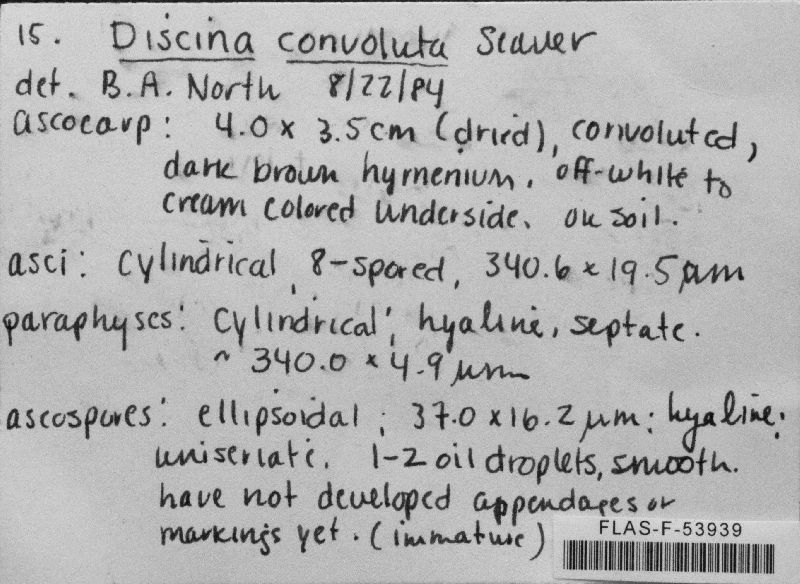 15. Discina convoluta Seaver
det. B.A. North 8/22/84
ascocarp: 4.0 x 3.5 cm (dried), convoluted,
dark brown hymenium. off-white to
cream colored underside. on soil.
asci: cylindrical, 8-spored, 340.6 x 19.5 µm
paraphyses: cylindrical, hyaline, septate.
~ 340.0 x 4.9 µm
ascospores: ellipsoidal; 37.0 x 16.2 µm; hyaline;
uniseriate. 1-2 oil droplets, smooth.
have not developed appendages or
markings yet. (immature)
FLAS-F-53939